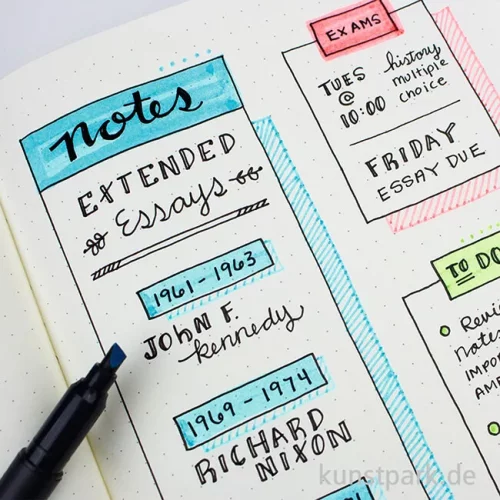 notes
EXTENDED
Essays
1961 - 1963
JOHN F.
Kennedy
1969 - 1974
RICHARD
NIXON
EXAMS
TUES
@
10:00
history
multiple
choice
FRIDAY
ESSAY DUE
TO DO
notes
kunstpark.de